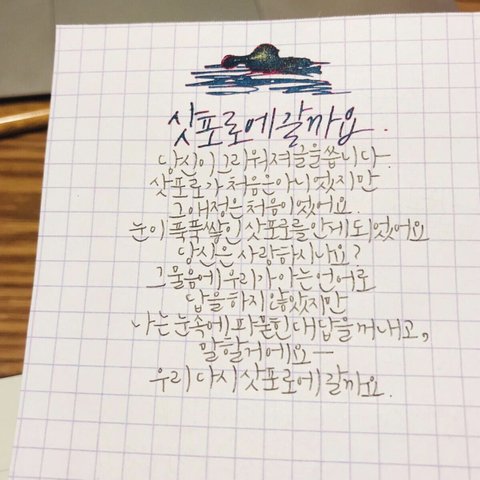 삿포로에 갈까요.
당신이 그리워져 글을 씁니다.
삿포로가 처음은 아니었지만
그 애정은 처음이었어요.
눈이 푹푹 쌓인 삿포로를 안게 되었어요
당신은 사랑하시나요?
그 물음에 우리가 아는 언어로
답을 하지 않았지만
나는 눈 속에 파묻힌 대답을 꺼내고,
말할 거에요—
우리 다시 삿포로에 갈까요.